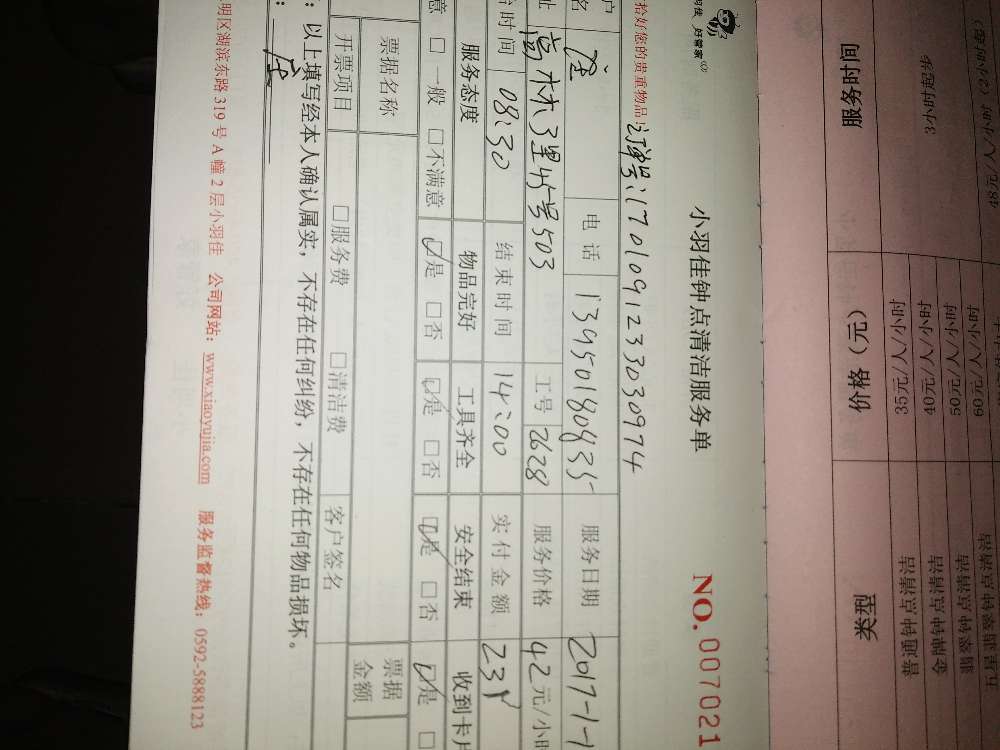 好管家
小羽佳钟点清洁服务单
NO. 007021
拾好您的贵重物品!
订单号:1701091233030974
户
名
电话
服务日期
2017-1-1
址
尚林3里45号503
工号
2628
服务价格
42元/小时
时间
08:30
结束时间
14:00
实付金额
231
服务态度
物品完好
工具齐全
安全结束
收到卡片
意 □一般 □不满意
☑是 □否
☑是 □否
☑是 □否
☑是 □
票据名称
票据
金额
开票项目
□服务费
□清洁费
客户签名
:以上填写经本人确认属实,不存在任何纠纷,不存在任何物品损坏。
明区湖滨东路 319 号 A 幢 2 层小羽佳 公司网站:www.xiaoyujia.com 服务监督热线:0592-5888123
服务时间
价格(元)
类型
3小时起步
35元/人/小时
普通钟点清洁
40元/人/小时
金牌钟点清洁
50元/人/小时
翡翠钟点清洁
60元/人/小时
五星翡翠钟点清洁
48元/人/小时